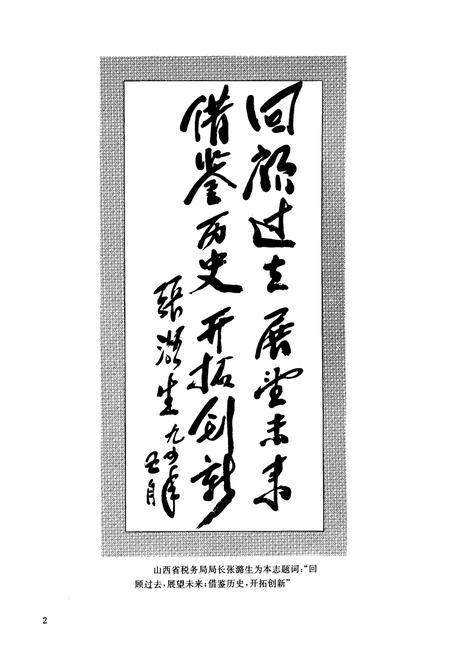 回顾过去展望未来
借鉴历史开拓创新
張潞生九四年
五月
山西省税务局局长张潞生为本志题词：“回
顾过去，展望未来；借鉴历史，开拓创新”
2